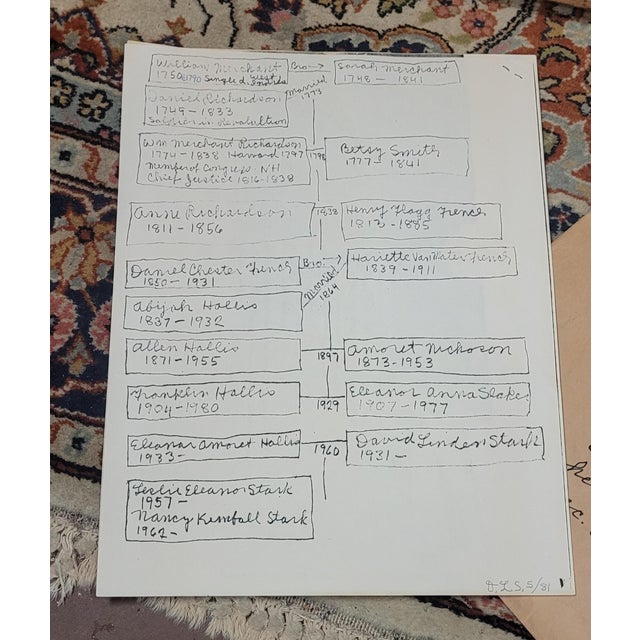 William Merchant
1750-1790 Single d. West Indies
Bro.
Sarah Merchant
1748 - 1841
Married
1773
Daniel Richardson
1749 - 1833
Soldier in Revolution
Wm Merchant Richardson
1774 - 1838 Harvard 1797
Member of Congress NH
Chief Justice 1816-1838
1798
Betsy Smith
1777 - 1841
Anne Richardson
1811 - 1856
1838
Henry Flagg French
1813 - 1885
Daniel Chester French
1850 - 1931
Bro.
Harriette Van Mater French
1839 - 1911
Married
1864
Abijah Hollis
1837 - 1932
Allen Hollis
1871 - 1955
1897
Amoret Nickoson
1873-1953
Franklin Hollis
1904-1980
1929
Eleanor Anna
1907-1977
Eleanor Amoret Hollis
1933-
1960
David Linden Stark
1931 -
Leslie Eleanor Stark
1957 -
Nancy Kemball Stark
1962 -
D.L.S. 5/81